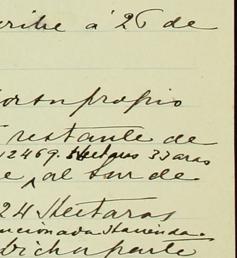 cribe á 26 de
por su propio
restante de
12469. Hectaras 33 aras
e al sur de
24 Hectaras
mencionada Hacienda.
dicha parte